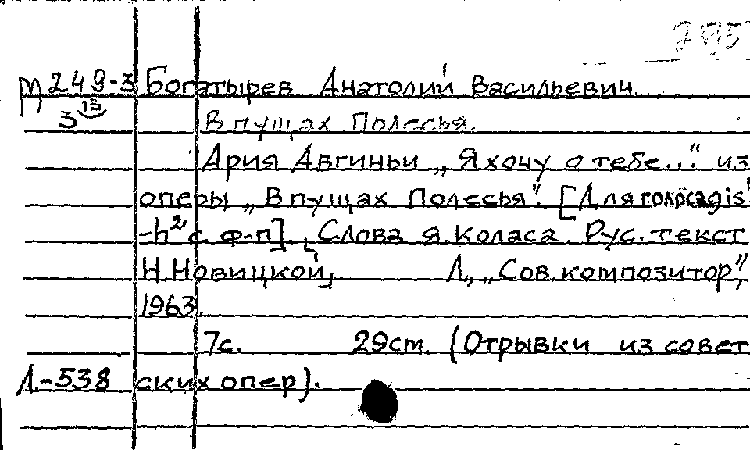 295
М 249-3 Богатырев Анатолий Васильевич.
3 13
В пущах Полесья.
Ария Авгиньи „Я хочу о тебе..." из
оперы „В пущах Полесья". [Для голоса gis¹
-h² с. ф-п], Слова Я. Коласа. Рус. текст
Н. Новицкой, Л, „Сов. композитор",
1963.
7с. 29см. (Отрывки из совет
Л-538 ских опер).